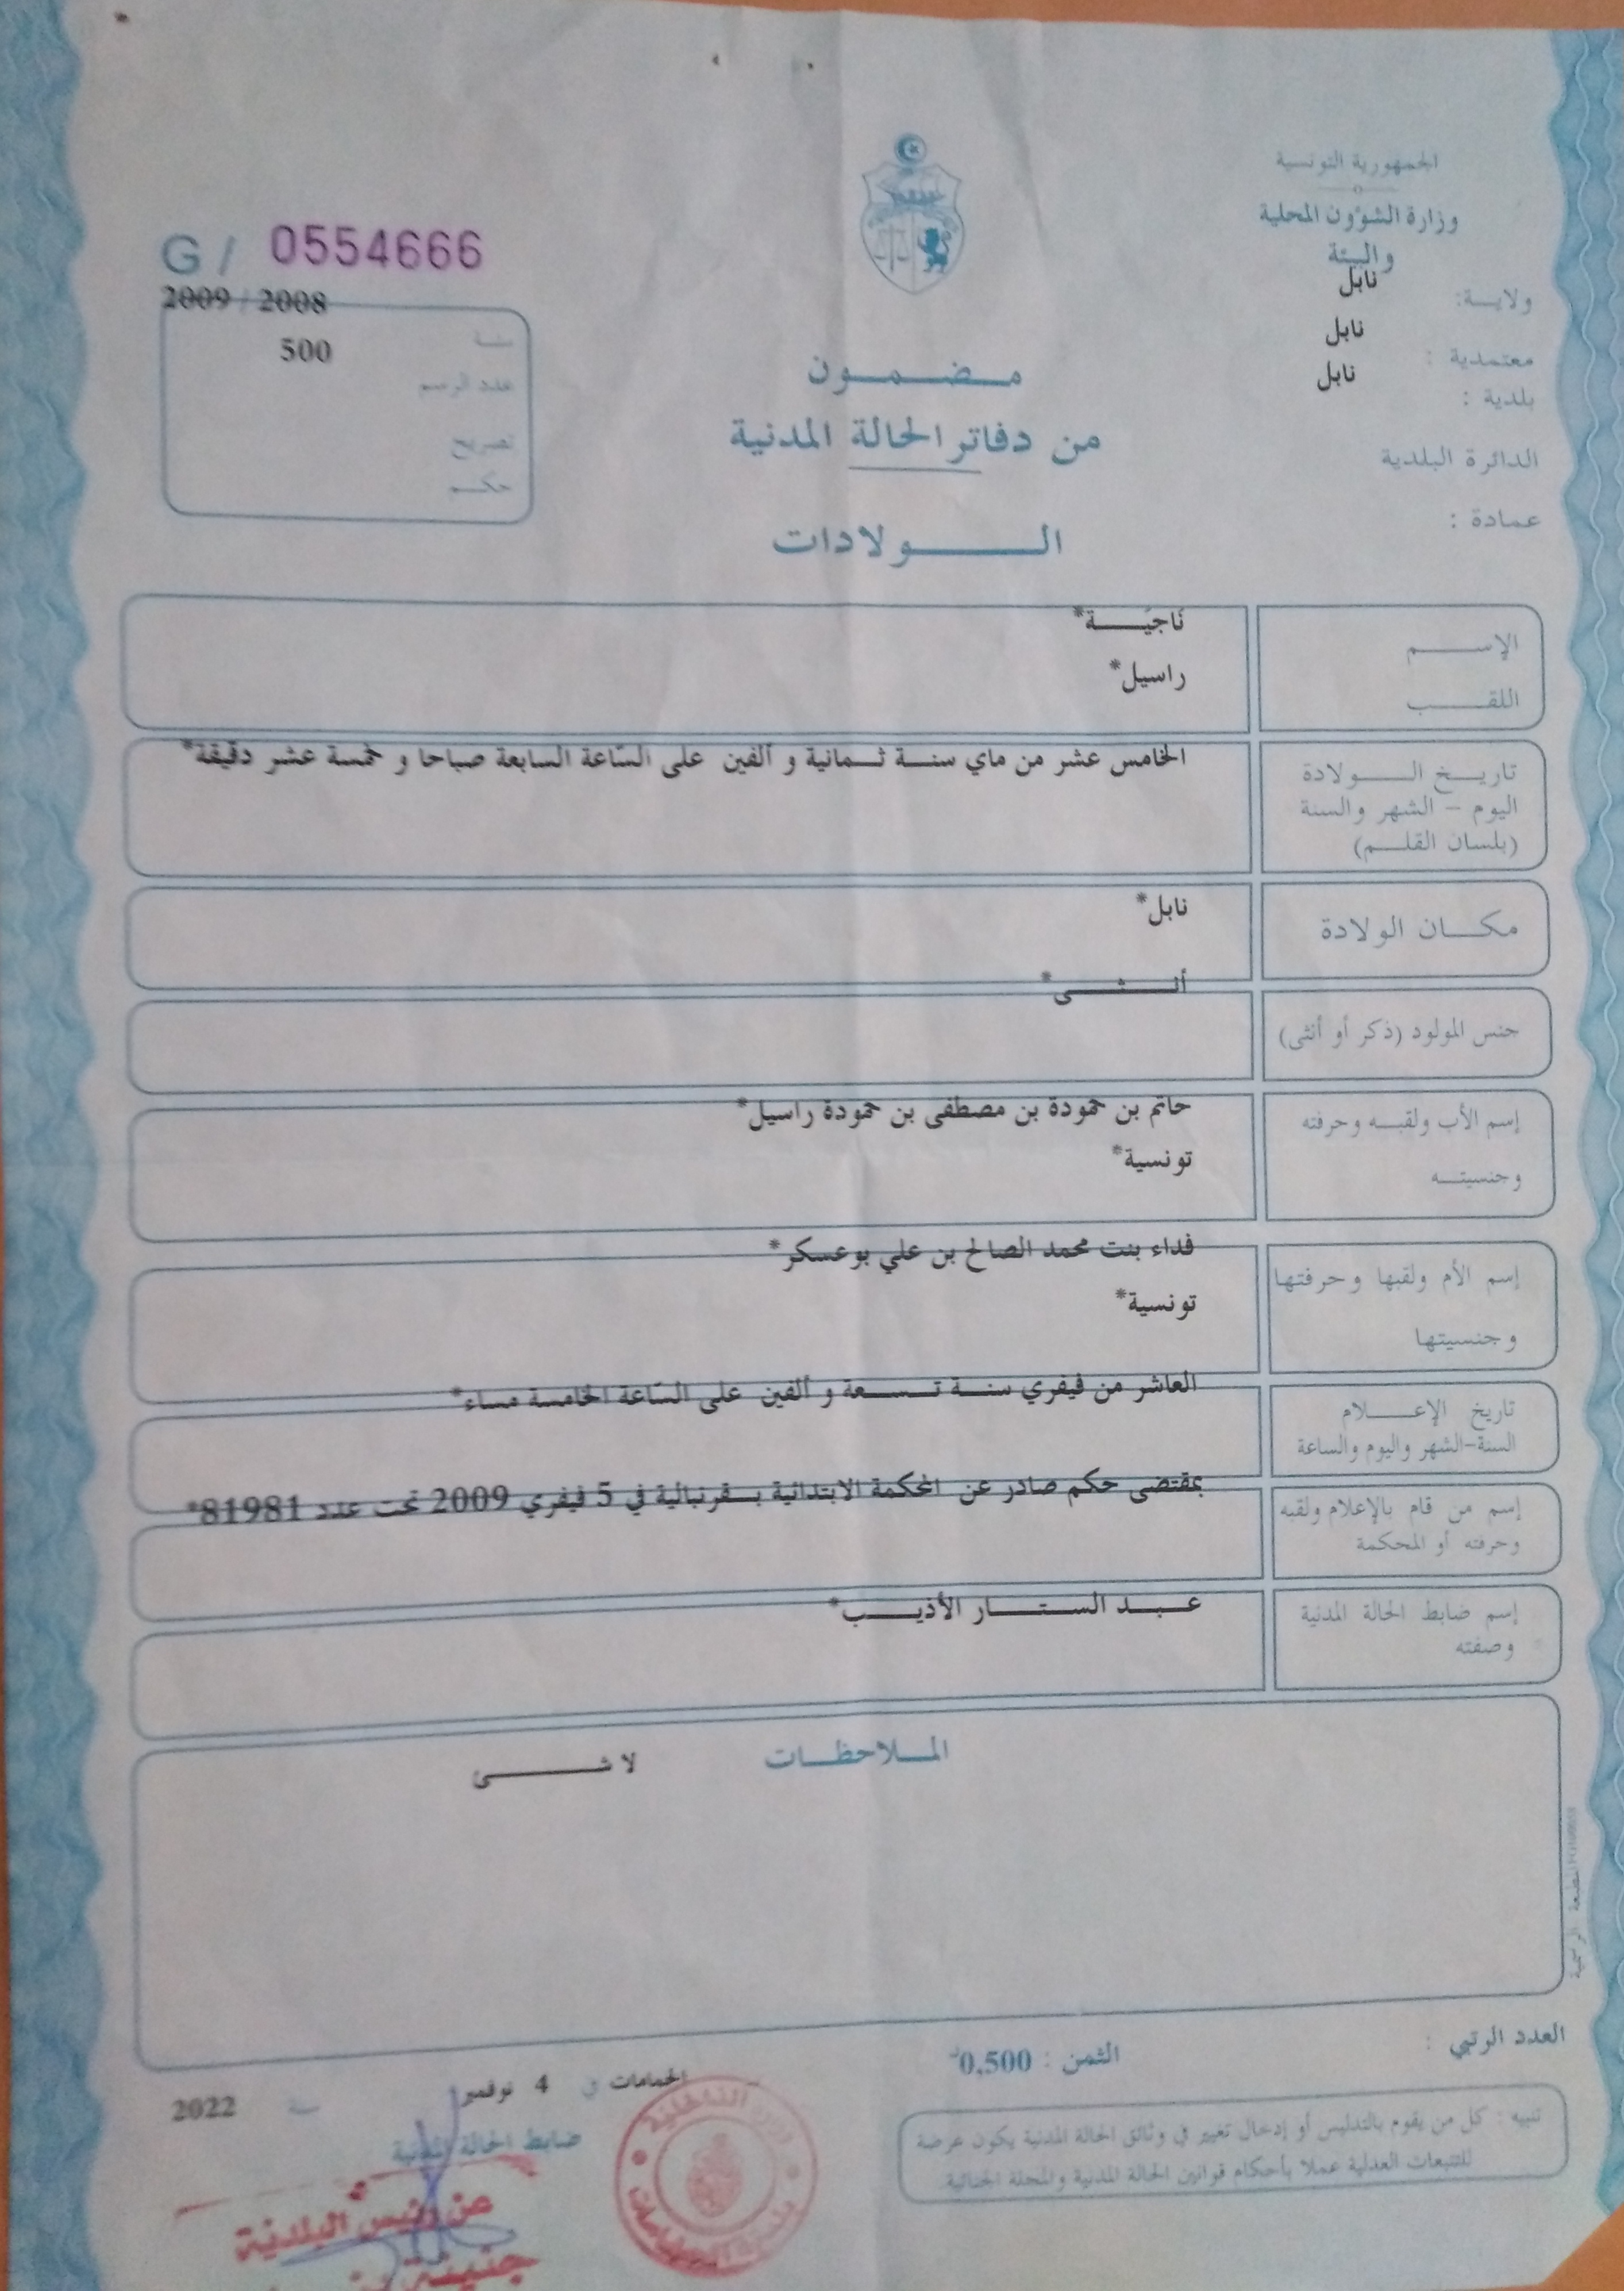 الجمهورية التونسية
وزارة الشؤون المحلية
والبيئة
ولايــة: نابل
معتمدية : نابل
بلدية : نابل
الدائرة البلدية
عمادة :
G / 0554666
2009 / 2008
سنة
500
عدد الرسم
تصريح
حكم
مضمون
من دفاتر الحالة المدنية
الولادات
الإسم
ناجية*
اللقب
راسيل*
تاريخ الولادة
اليوم - الشهر والسنة
(بلسان القلم)
الخامس عشر من ماي سنة ثمانية و ألفين على السّاعة السابعة صباحا و خمسة عشر دقيقة*
مكان الولادة
نابل*
جنس المولود (ذكر أو أنثى)
أنثى*
إسم الأب ولقبه وحرفته
وجنسيته
حاتم بن حمودة بن مصطفى بن حمودة راسيل*
تونسية*
إسم الأم ولقبها وحرفتها
وجنسيتها
فداء بنت محمد الصالح بن علي بوعسكر*
تونسية*
تاريخ الإعلام
السنة-الشهر واليوم والساعة
العاشر من فيفري سنة تسعة و ألفين على السّاعة الخامسة مساء*
إسم من قام بالإعلام ولقبه
وحرفته أو المحكمة
بمقتضى حكم صادر عن المحكمة الابتدائية بقرنبالية في 5 فيفري 2009 تحت عدد 81981*
إسم ضابط الحالة المدنية
وصفته
عبد الستار الأذيب*
الملاحظات لا شئ
المطبعة الرسمية
العدد الرتبي :
الثمن : 0,500د
تنبيه : كل من يقوم بالتدليس أو إدخال تغيير في وثائق الحالة المدنية يكون عرضة
للتتبعات العدلية عملا بأحكام قوانين الحالة المدنية والمجلة الجنائية.
الحمامات في 4 نوفمبر سنة 2022
ضابط الحالة المدنية
عن رئيس البلدية